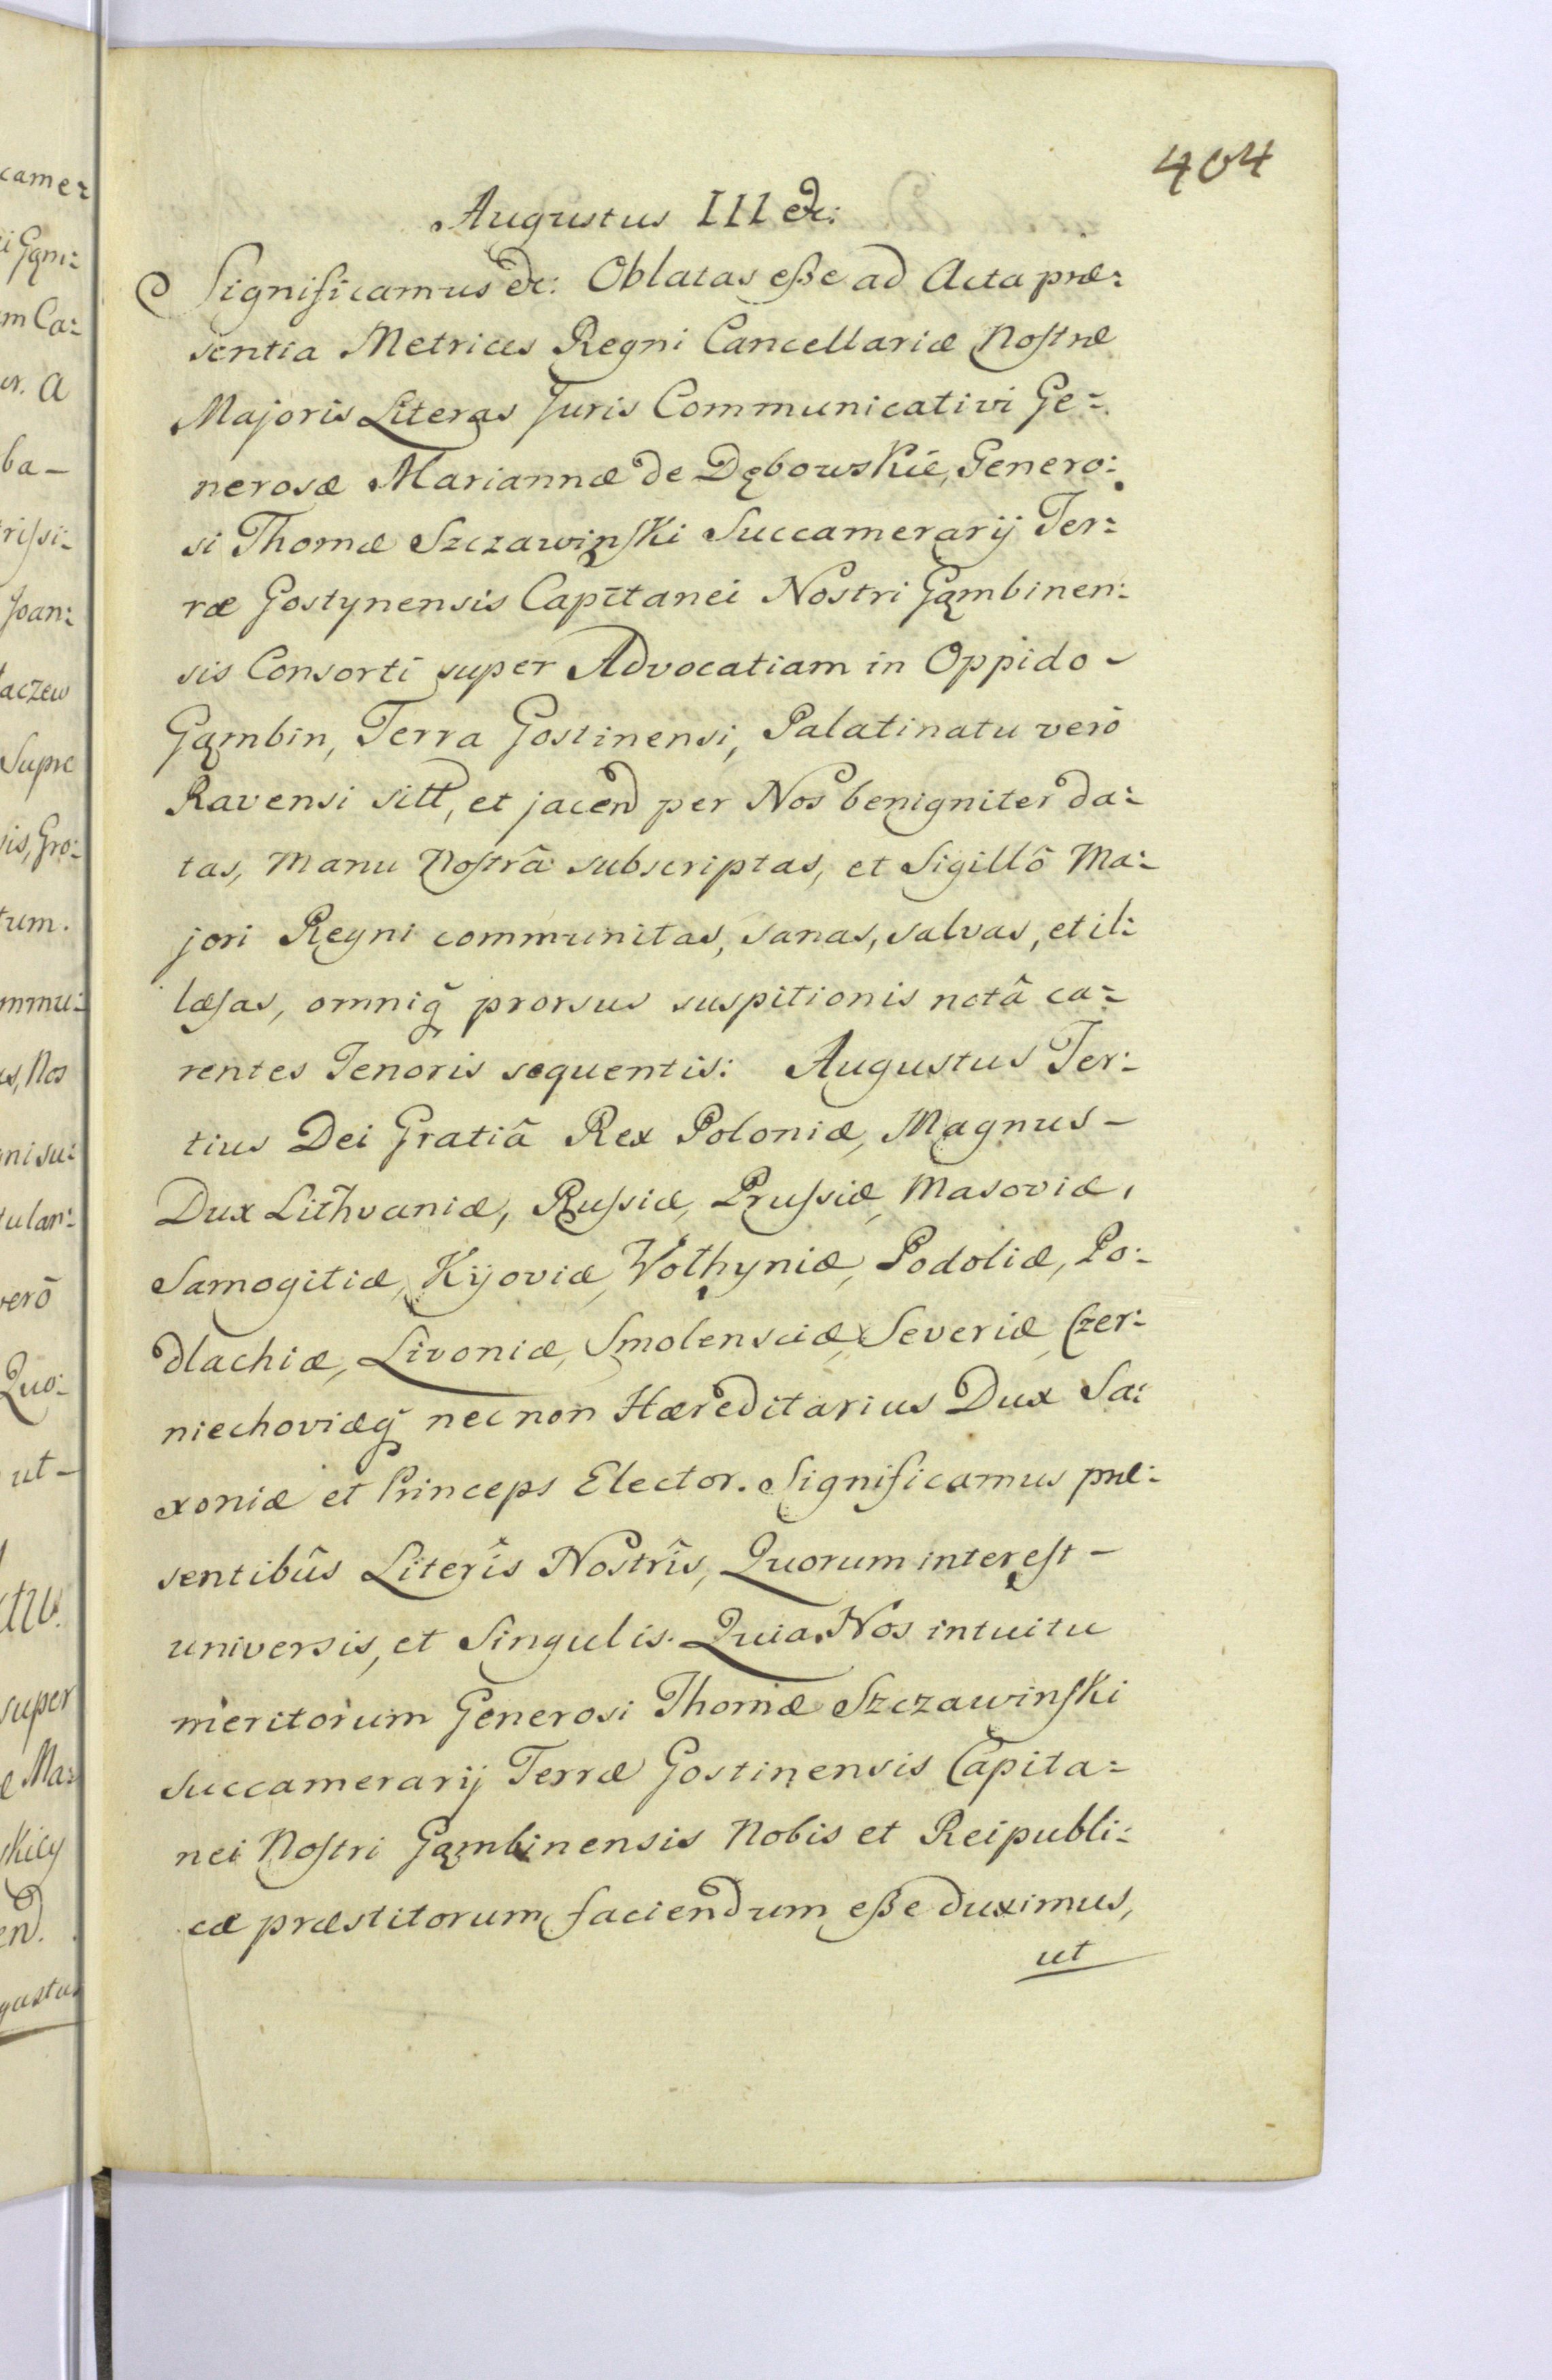 404
Augustus III &c:
Significamus &c: Oblatas eße ad Acta præ:
sentia Metrices Regni Cancellariæ Noſtræ
Majoris Literas Juris Communicativi Ge=
nerosæ Mariannæ de Dębowskie, Genero:
si Thomæ Szczawinſki Succamerarij Ter:
ræ Gostynensis Capitanei Nostri Gąmbinen:
sis Consorti super Advocatiam in Oppido -
Gąmbin, Terra Gostinensi, Palatinatu verò
Ravensi sitt, et jacend per Nos benigniter da:
tas, Manu Noſtrâ subscriptas, et Sigillô Ma:
jori Regni communitas, sanas, salvas, et il:
læſas, omniq̃ prorsus suspitionis notâ ca:
rentes Tenoris sequentis: Augustus Ter:
tius Dei Gratiâ Rex Poloniæ, Magnus -
Dux Lithvaniæ, Ruſsiæ, Pruſsiæ, Masoviæ,
Samogitiæ, Kijoviæ, Volhyniæ, Podoliæ, Po:
dlachiæ, Livoniæ, Smolensciæ, Severiæ, Czer:
niechoviæq̃ nec non Hæreditarius Dux Sa:
xoniæ et Princeps Elector. Significamus præ:
sentibûs Literîs Nostrîs, Quorum intereſt -
universis, et Singulis. Quia Nos intuitu
meritorum Generosi Thomæ Szczawinſki
Succamerarij Terræ Gostinensis Capita:
nei Noſtri Gąmbinensis Nobis et Reipubli:
cæ præstitorum faciendum eße duximus,
ut
came:
i Gąm:
m Ca:
A
ba -
riſsi:
Joan:
aczew
Supre
is, Gro:
tum.
mmu:
us, Nos
ni su:
tulan:
verò
Quo:
ut -
super
æ Ma:
skiey
en.
gustus